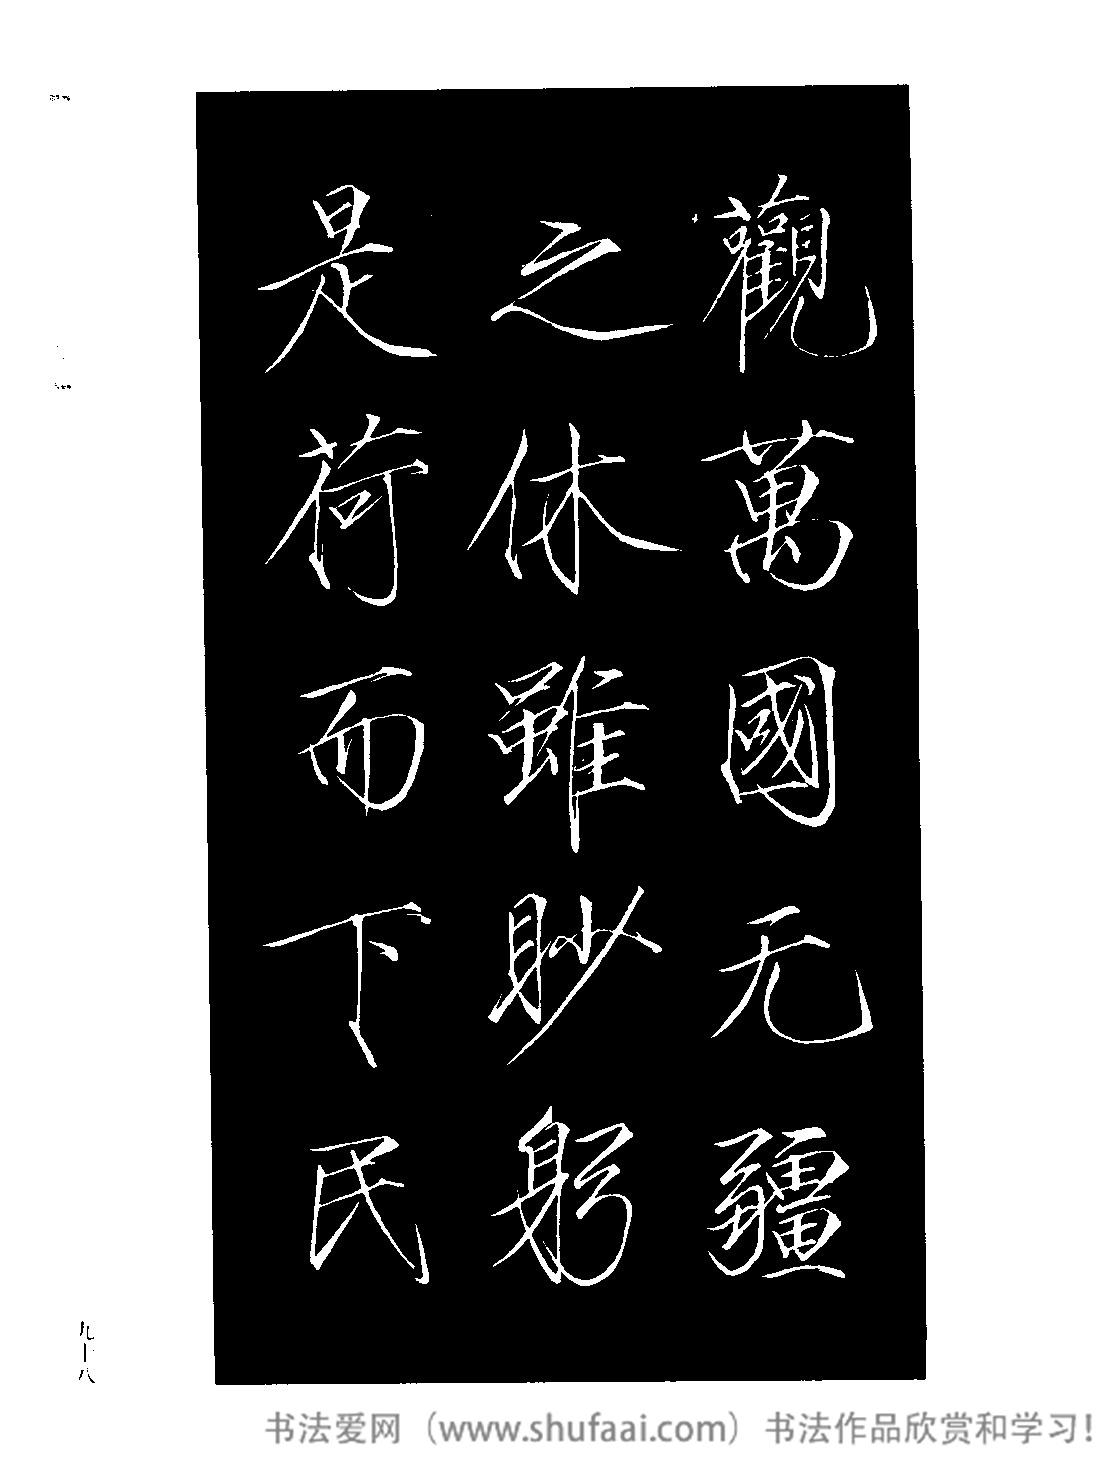 觀萬國无疆
之休雖眇躬
是荷而下民
九十八
书法爱网（www.shufaai.com）书法作品欣赏和学习！